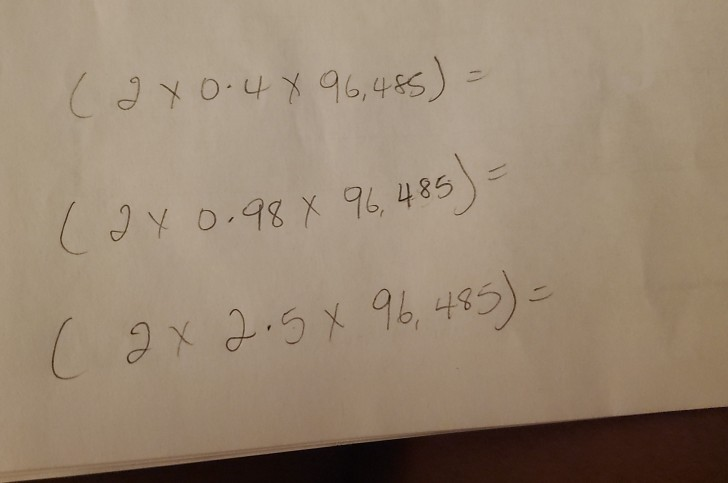 (2 x 0.4 x 96,485) =
(2 x 0.98 x 96,485) =
(2 x 2.5 x 96,485) =